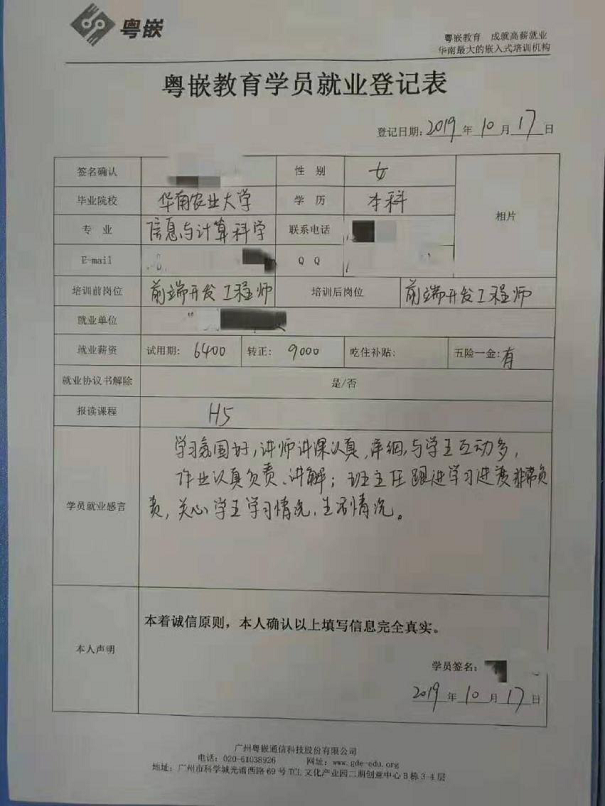 粤嵌
粤嵌教育 成就高薪就业
华南最大的嵌入式培训机构
粤嵌教育学员就业登记表
登记日期：2019年10月17日
签名确认 性 别 女 相片
毕业院校 华南农业大学 学 历 本科
专 业 信息与计算科学 联系电话
E-mail Q Q
培训前岗位 前端开发工程师 培训后岗位 前端开发工程师
就业单位
就业薪资 试用期：6400 转正：9000 吃住补贴： 五险一金：有
就业协议书解除 是/否
报读课程 H5
学员就业感言
学习氛围好，讲师讲课认真，详细，与学生互动多，
作业认真负责、讲解；班主任跟进学习进度非常负
责，关心学生学习情况，生活情况。
本人声明
本着诚信原则，本人确认以上填写信息完全真实。
学员签名：
2019年10月17日
广州粤嵌通信科技股份有限公司
电话：020-61038926 网址：www.gde-edu.org
地址：广州市科学城光谱西路69号TCL文化产业园二期创意中心B栋3-4层